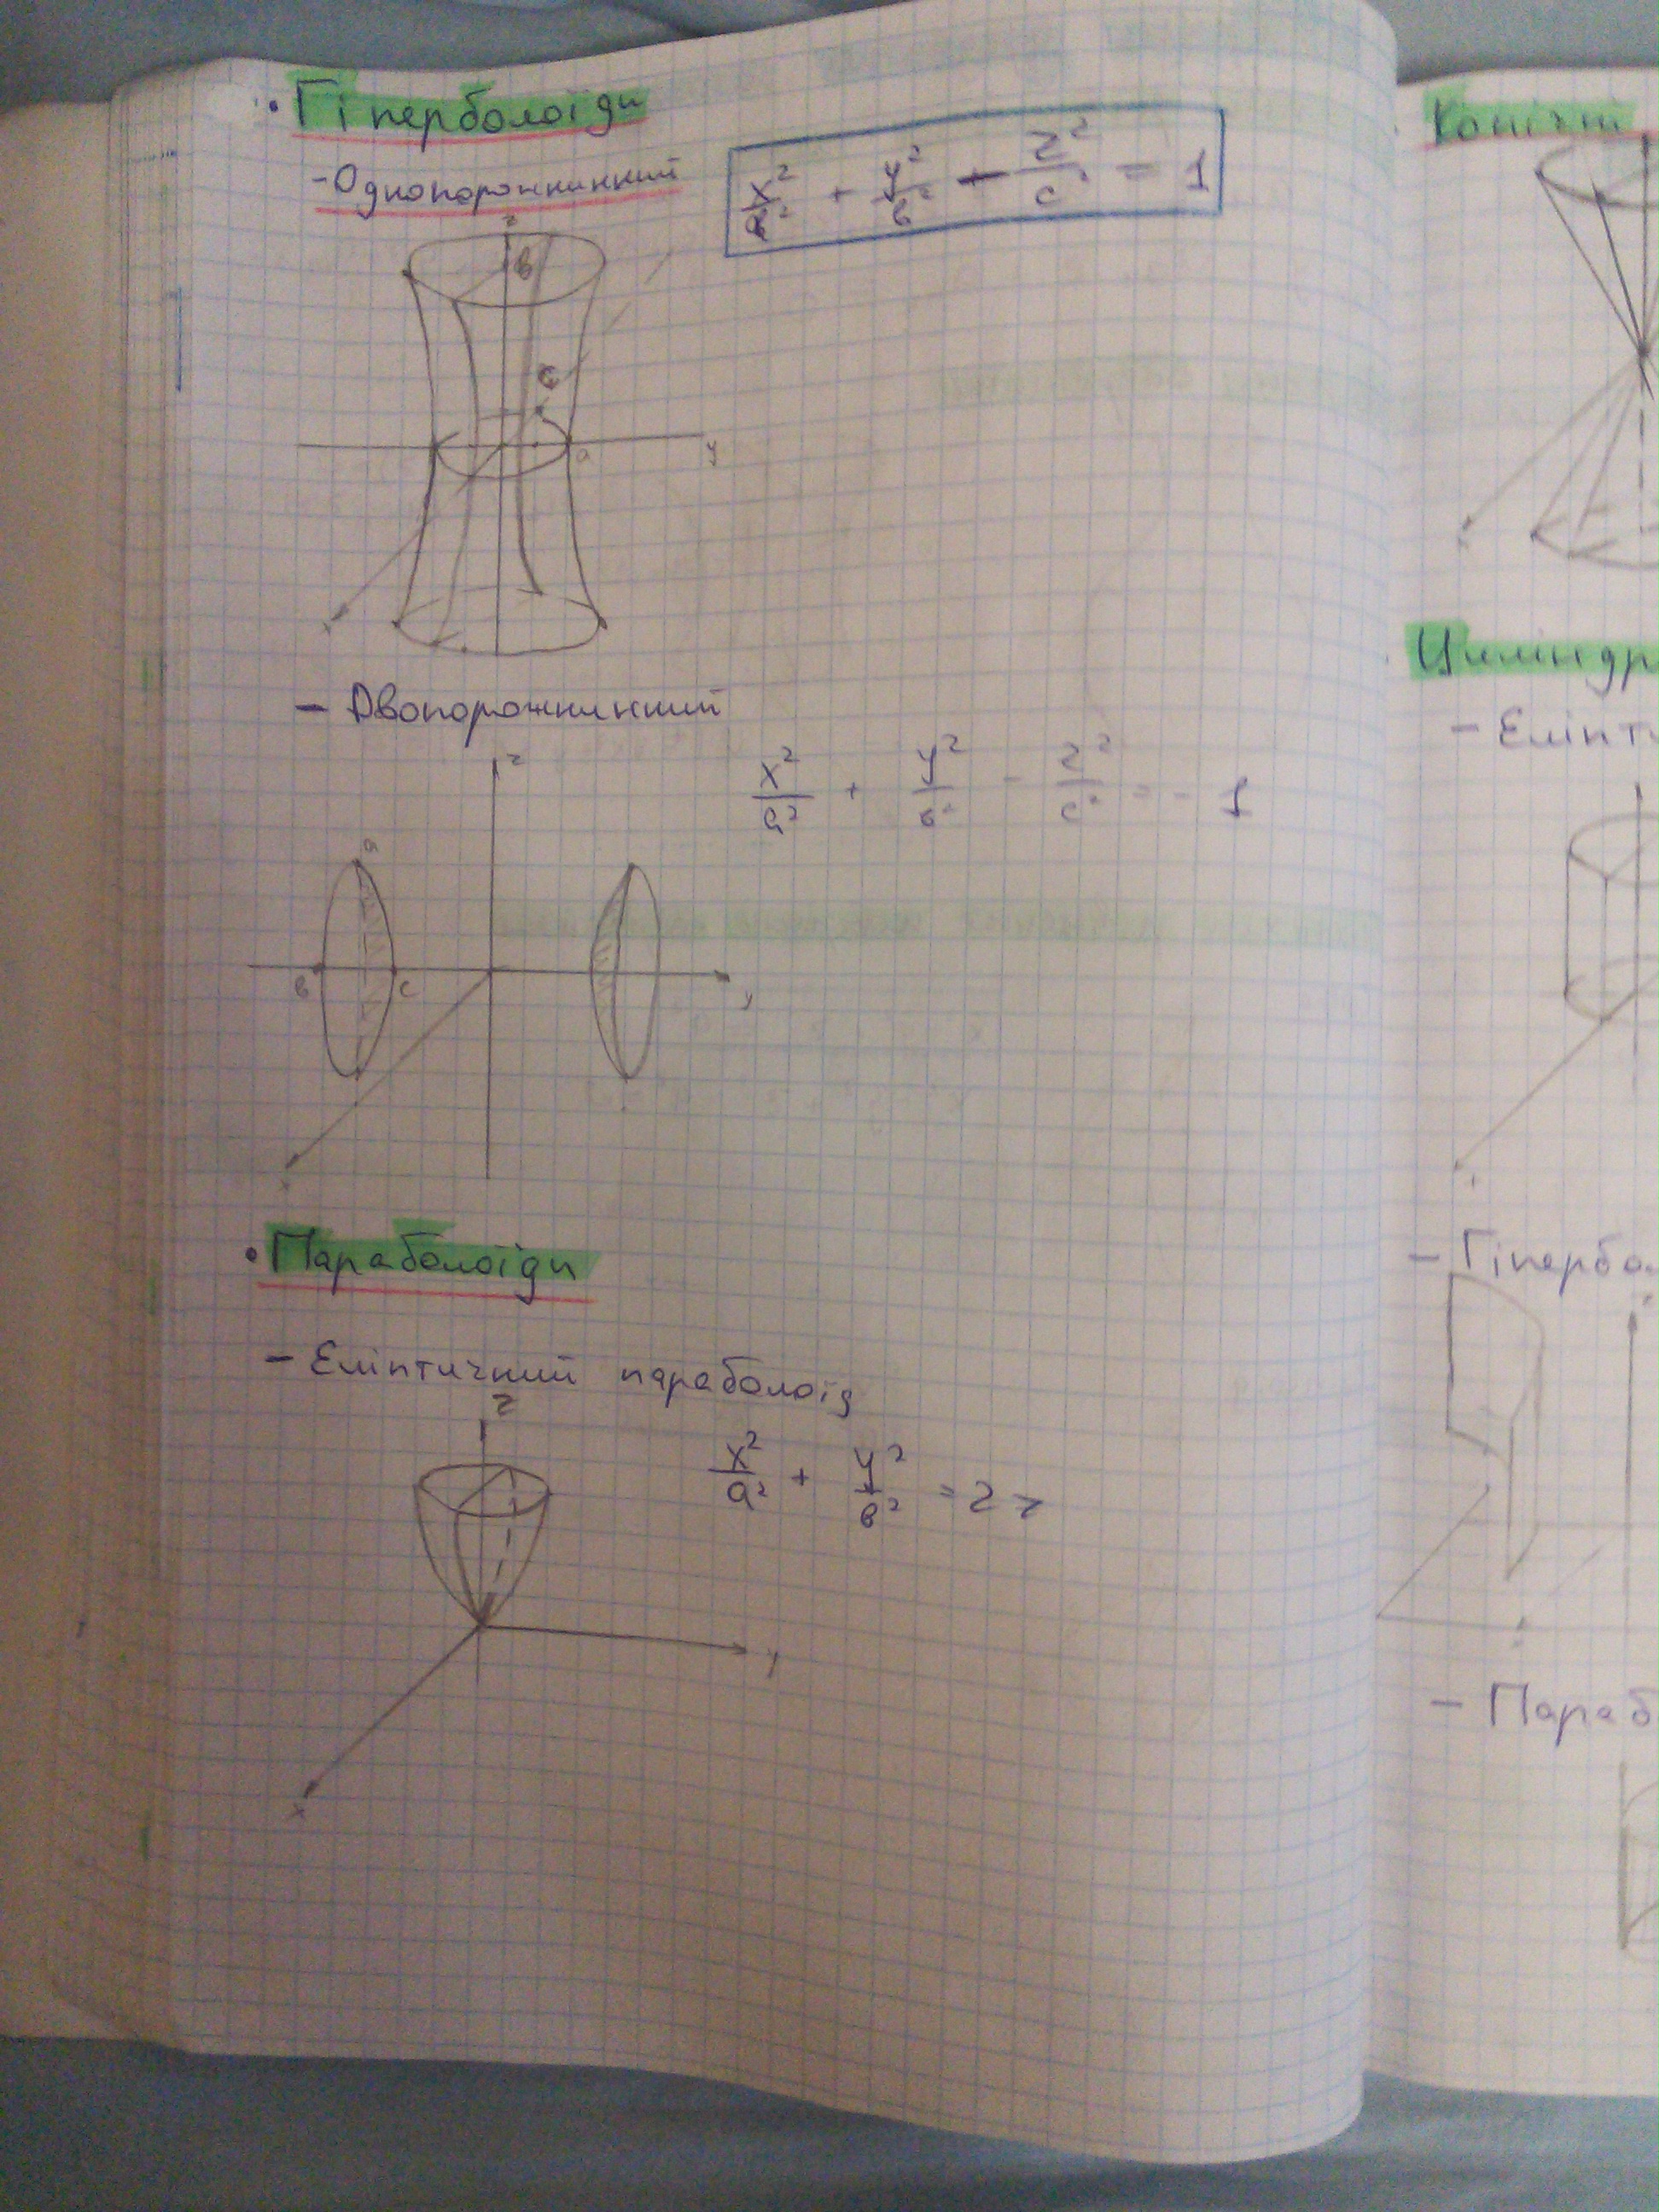 · Гіперболоїди
- Однопорожнинний
x²/a² + y²/b² - z²/c² = 1
z
b
c
a
y
x
- Двопорожнинний
x²/a² + y²/b² - z²/c² = - 1
z
a
b
c
y
x
· Параболоїди
- Еліптичний параболоїд
x²/a² + y²/b² = 2z
z
y
x
Конічні
Циліндр
- Еліпт
- Гіпербо
- Параб